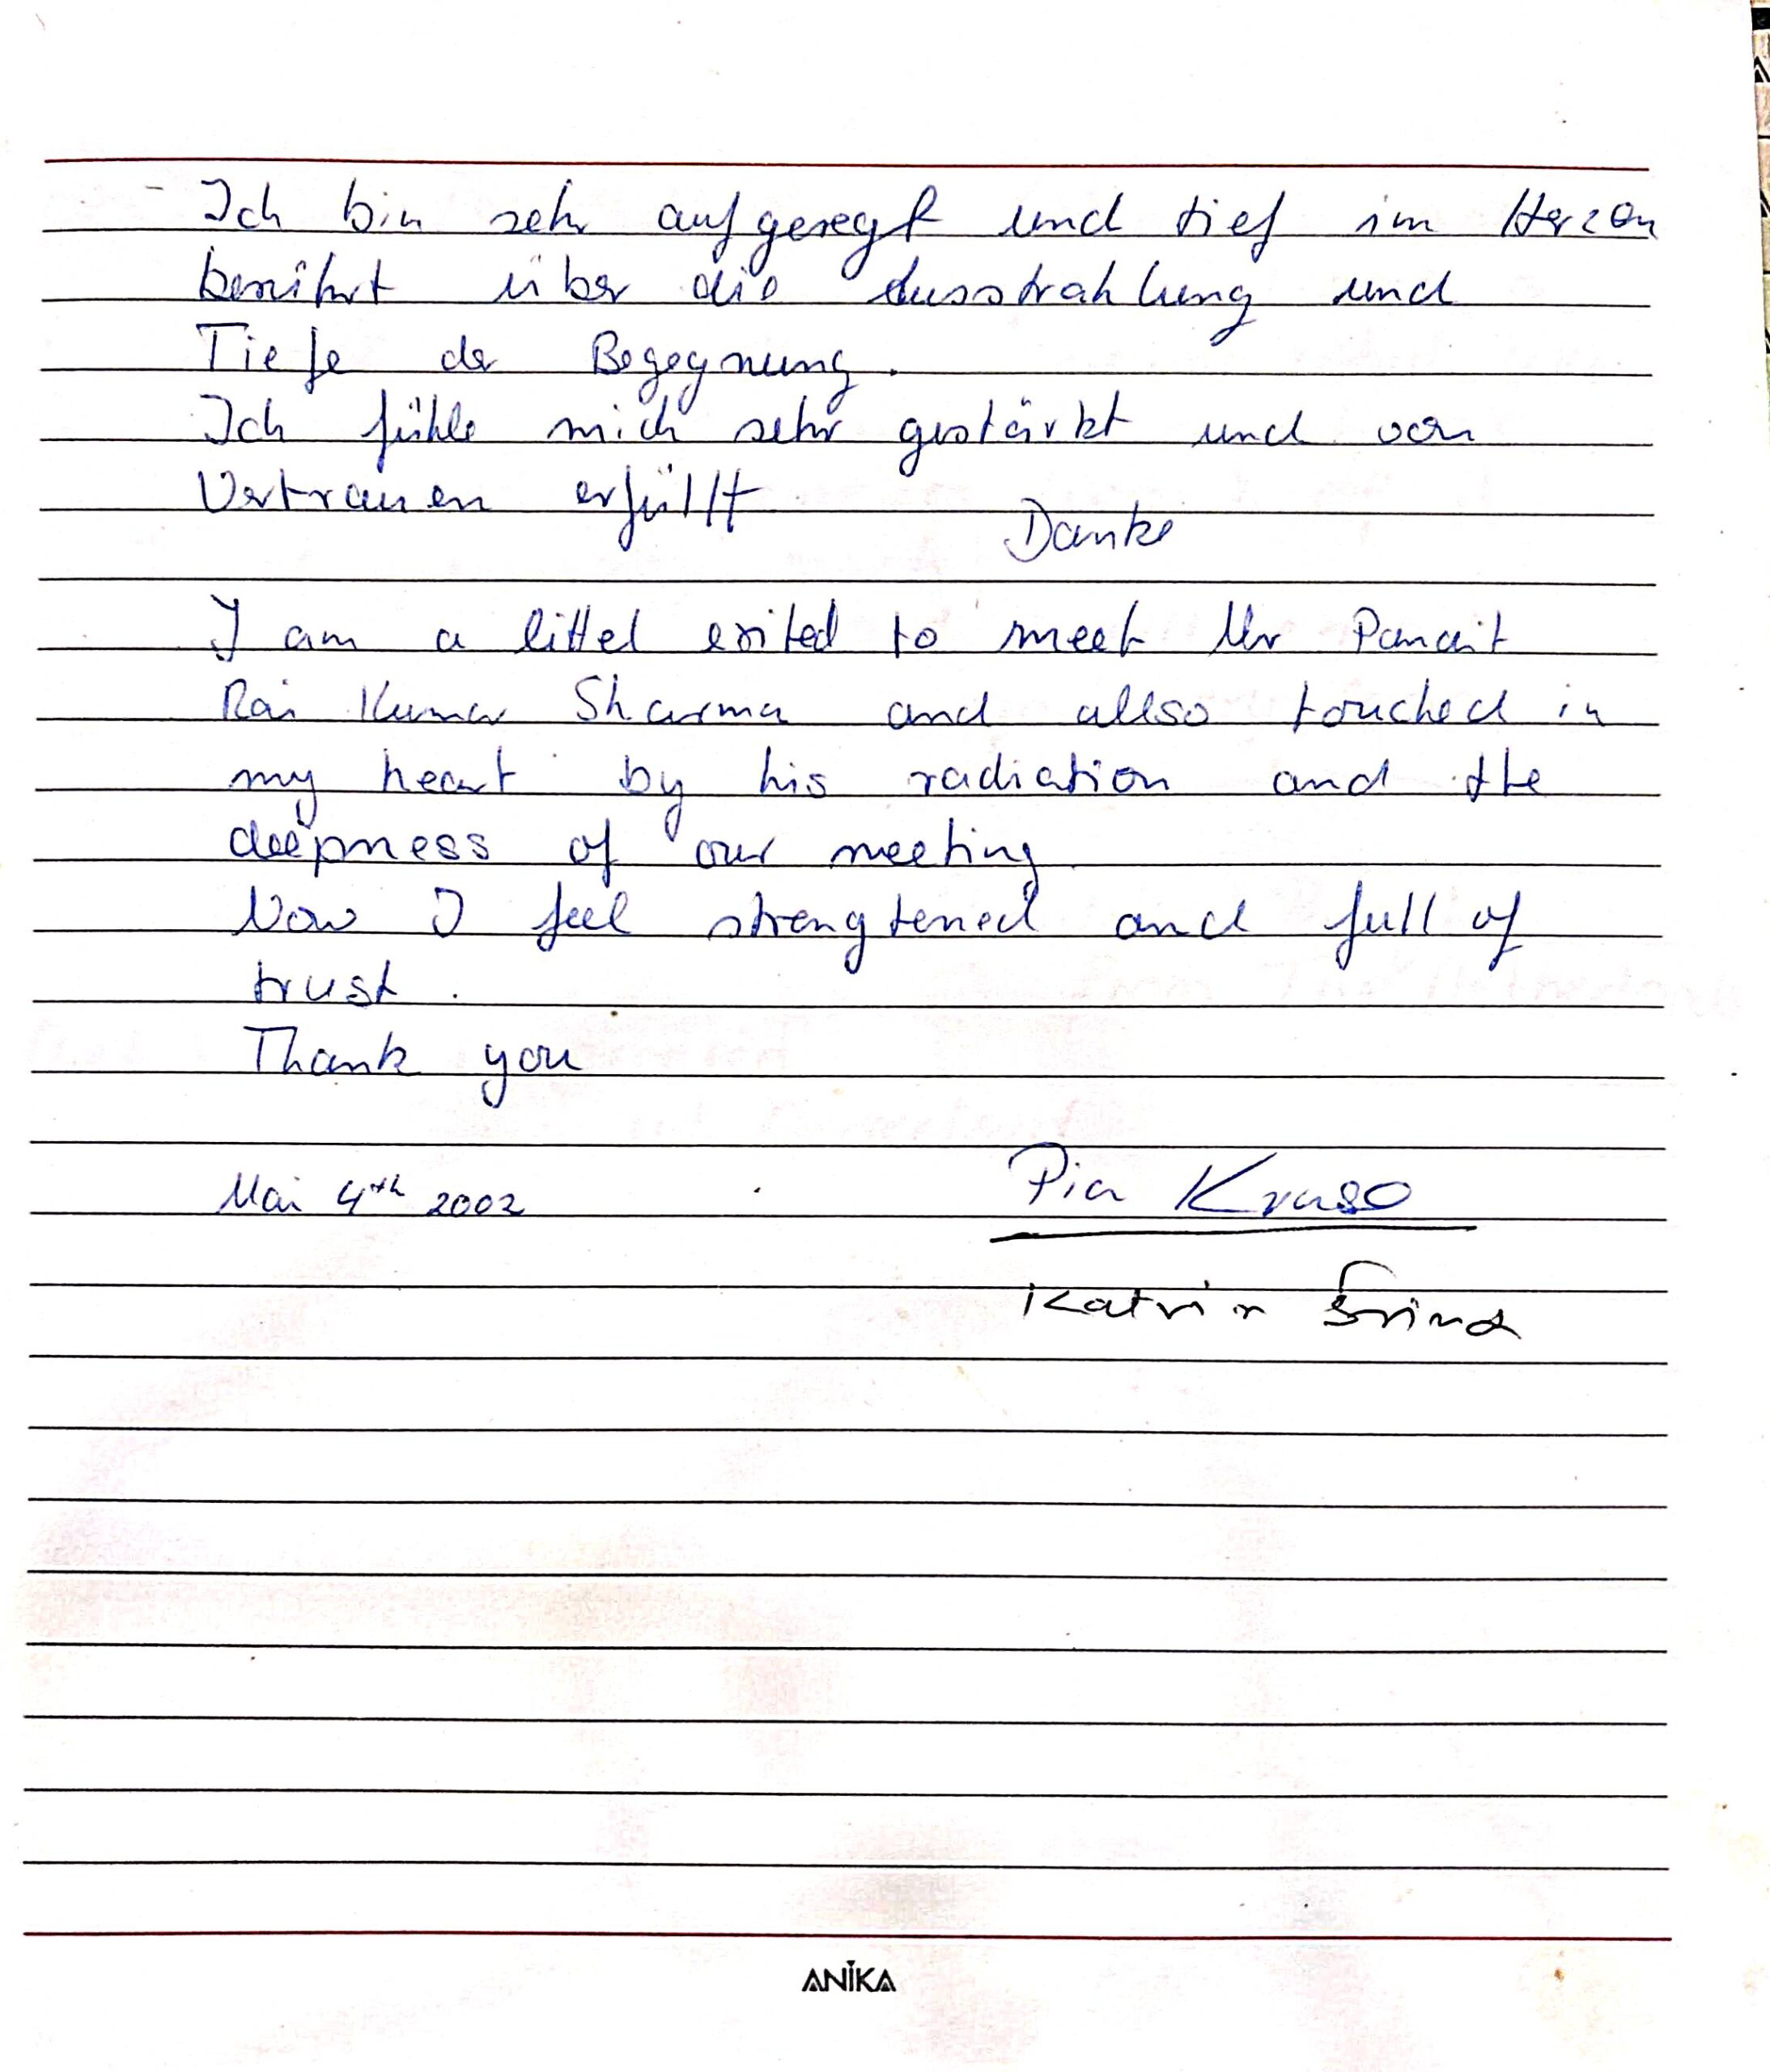 - Ich bin sehr aufgeregt und tief im Herzen
berührt über die Ausstrahlung und
Tiefe der Begegnung.
Ich fühle mich sehr gestärkt und von
Vertrauen erfüllt.
Danke
I am a littel exited to meet Mr Pandit
Rai Kumar Sharma and allso touched in
my heart by his radiation and the
deepness of our meeting.
Now I feel strengtened and full of
trust.
Thank you
Mai 4th 2002
Pia Kruse
Katrin
ANIKA